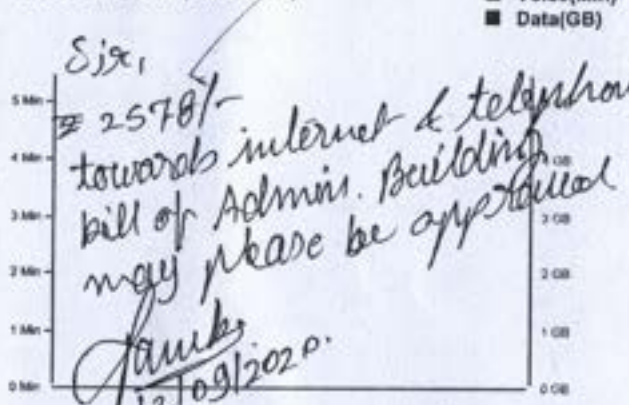 Voice(Min)
Data(GB)
Sir,
₹ 2578/-
towards internet & telephon
bill of Admin. Building
may please be approved
12/09/2020.
5 Min
4 Min
3 Min
2 Min
1 Min
0 Min
GB
3 GB
2 GB
1 GB
0 GB